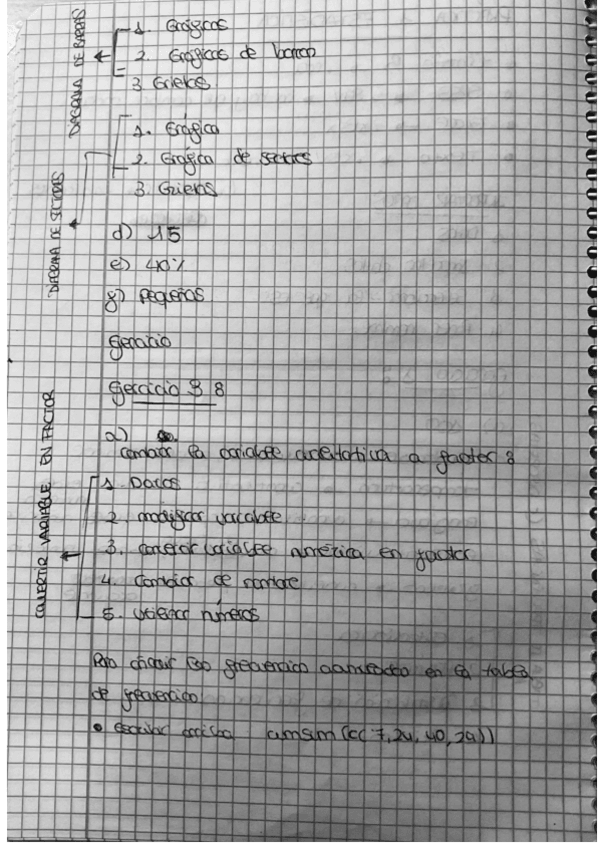 DIAGRAMA DE BARRAS
1. Gráficos
2. Gráficos de barras
3. Grietas
DIAGRAMA DE SECTORES
1. Gráfica
2. Gráfica de sectores
3. Grietas
d) 15
e) 40%
g) pequeñas
Ejercicio
Ejercicio 3 8
a)
cambiar la variable cuantitativa a factor :
CONVERTIR VARIABLE EN FACTOR
1. Datos
2. modificar variable
3. convertir variable numérica en factor
4. Cambiar de nombre
5. utilizar números
Para añadir las frecuencias acumuladas en la tabla
de frecuencias
• escribir arriba cumsum (c(7, 24, 40, 29))